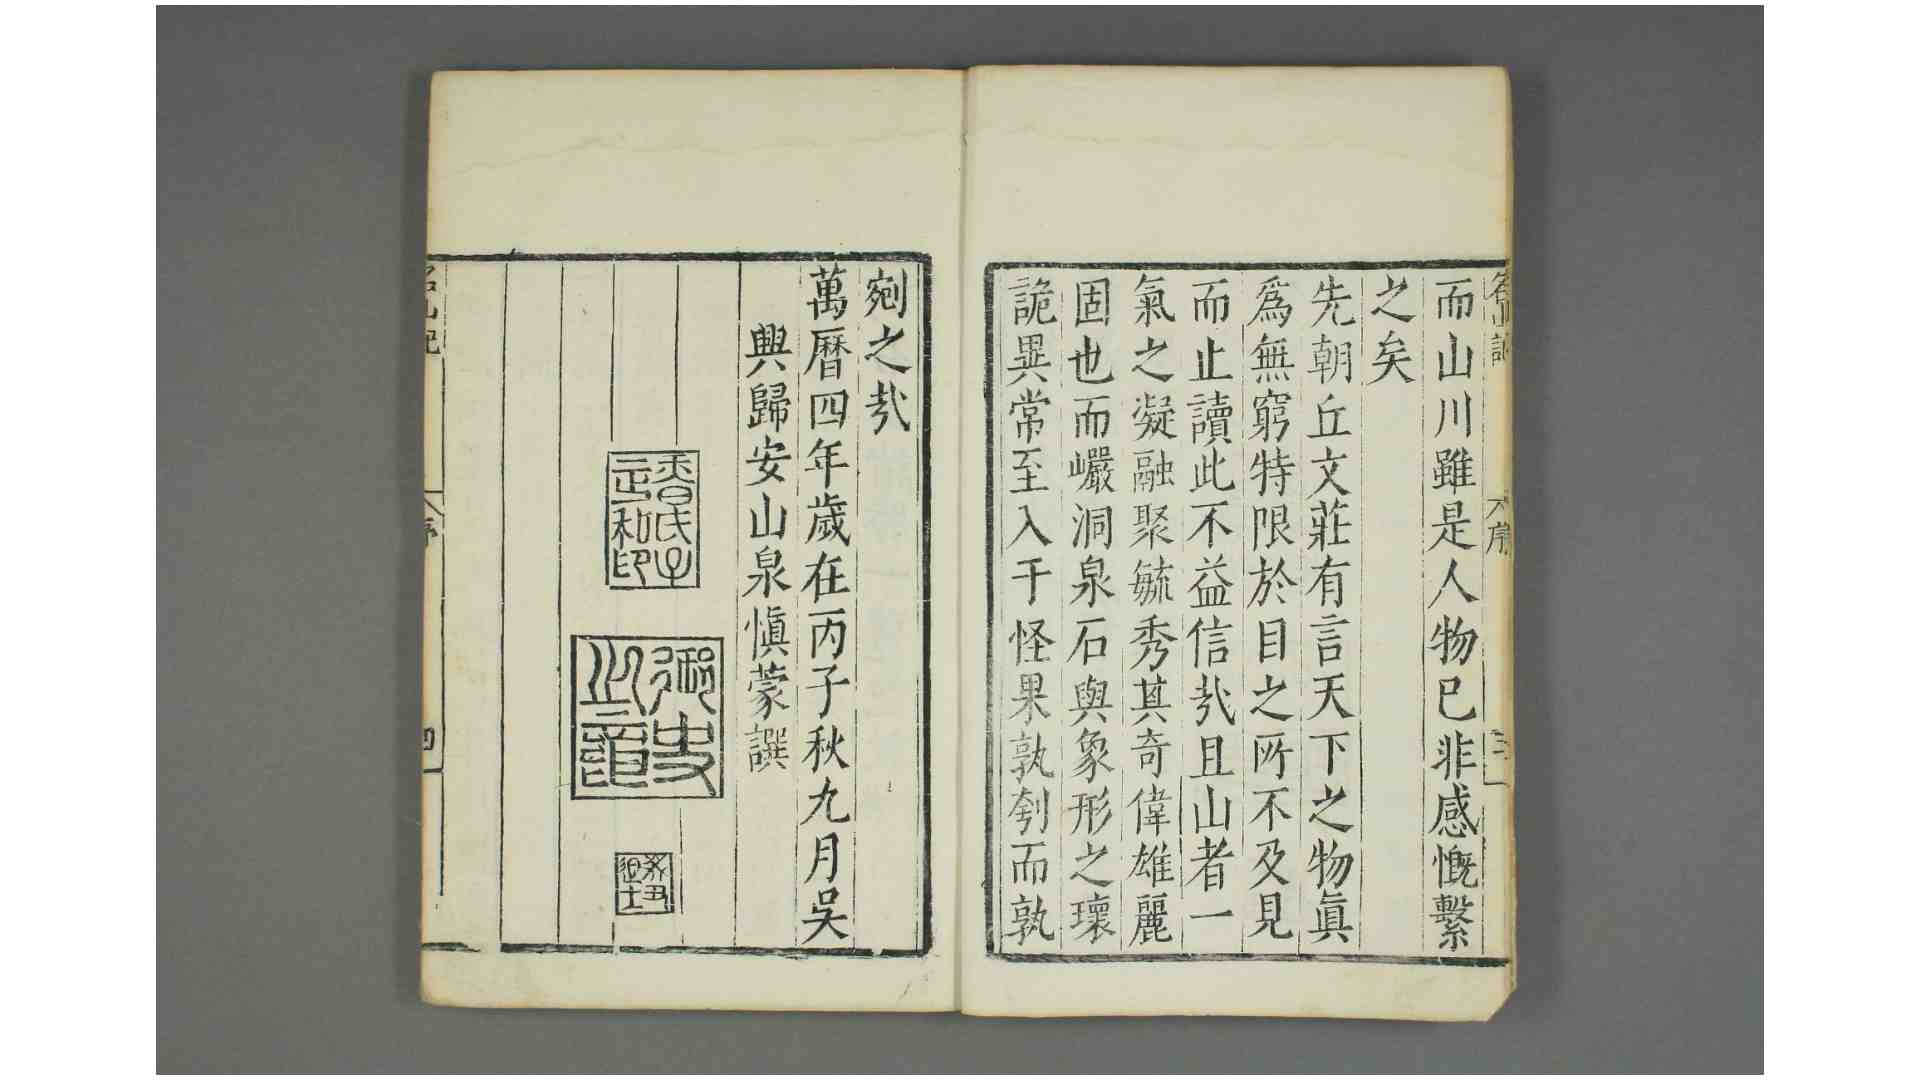 名山記
序
三
而山川雖是人物已非感慨繫
之矣
先朝丘文莊有言天下之物眞
爲無窮特限於目之所不及見
而止讀此不益信㢤且山者一
氣之凝融聚毓秀其奇偉雄麗
固也而巗洞泉石與象形之瓌
詭異常至入于怪果孰刳而孰
剜之㢤
萬曆四年歲在丙子秋九月吳
興歸安山泉愼蒙譔
御史之章
癸丑進士
名山記
序
四